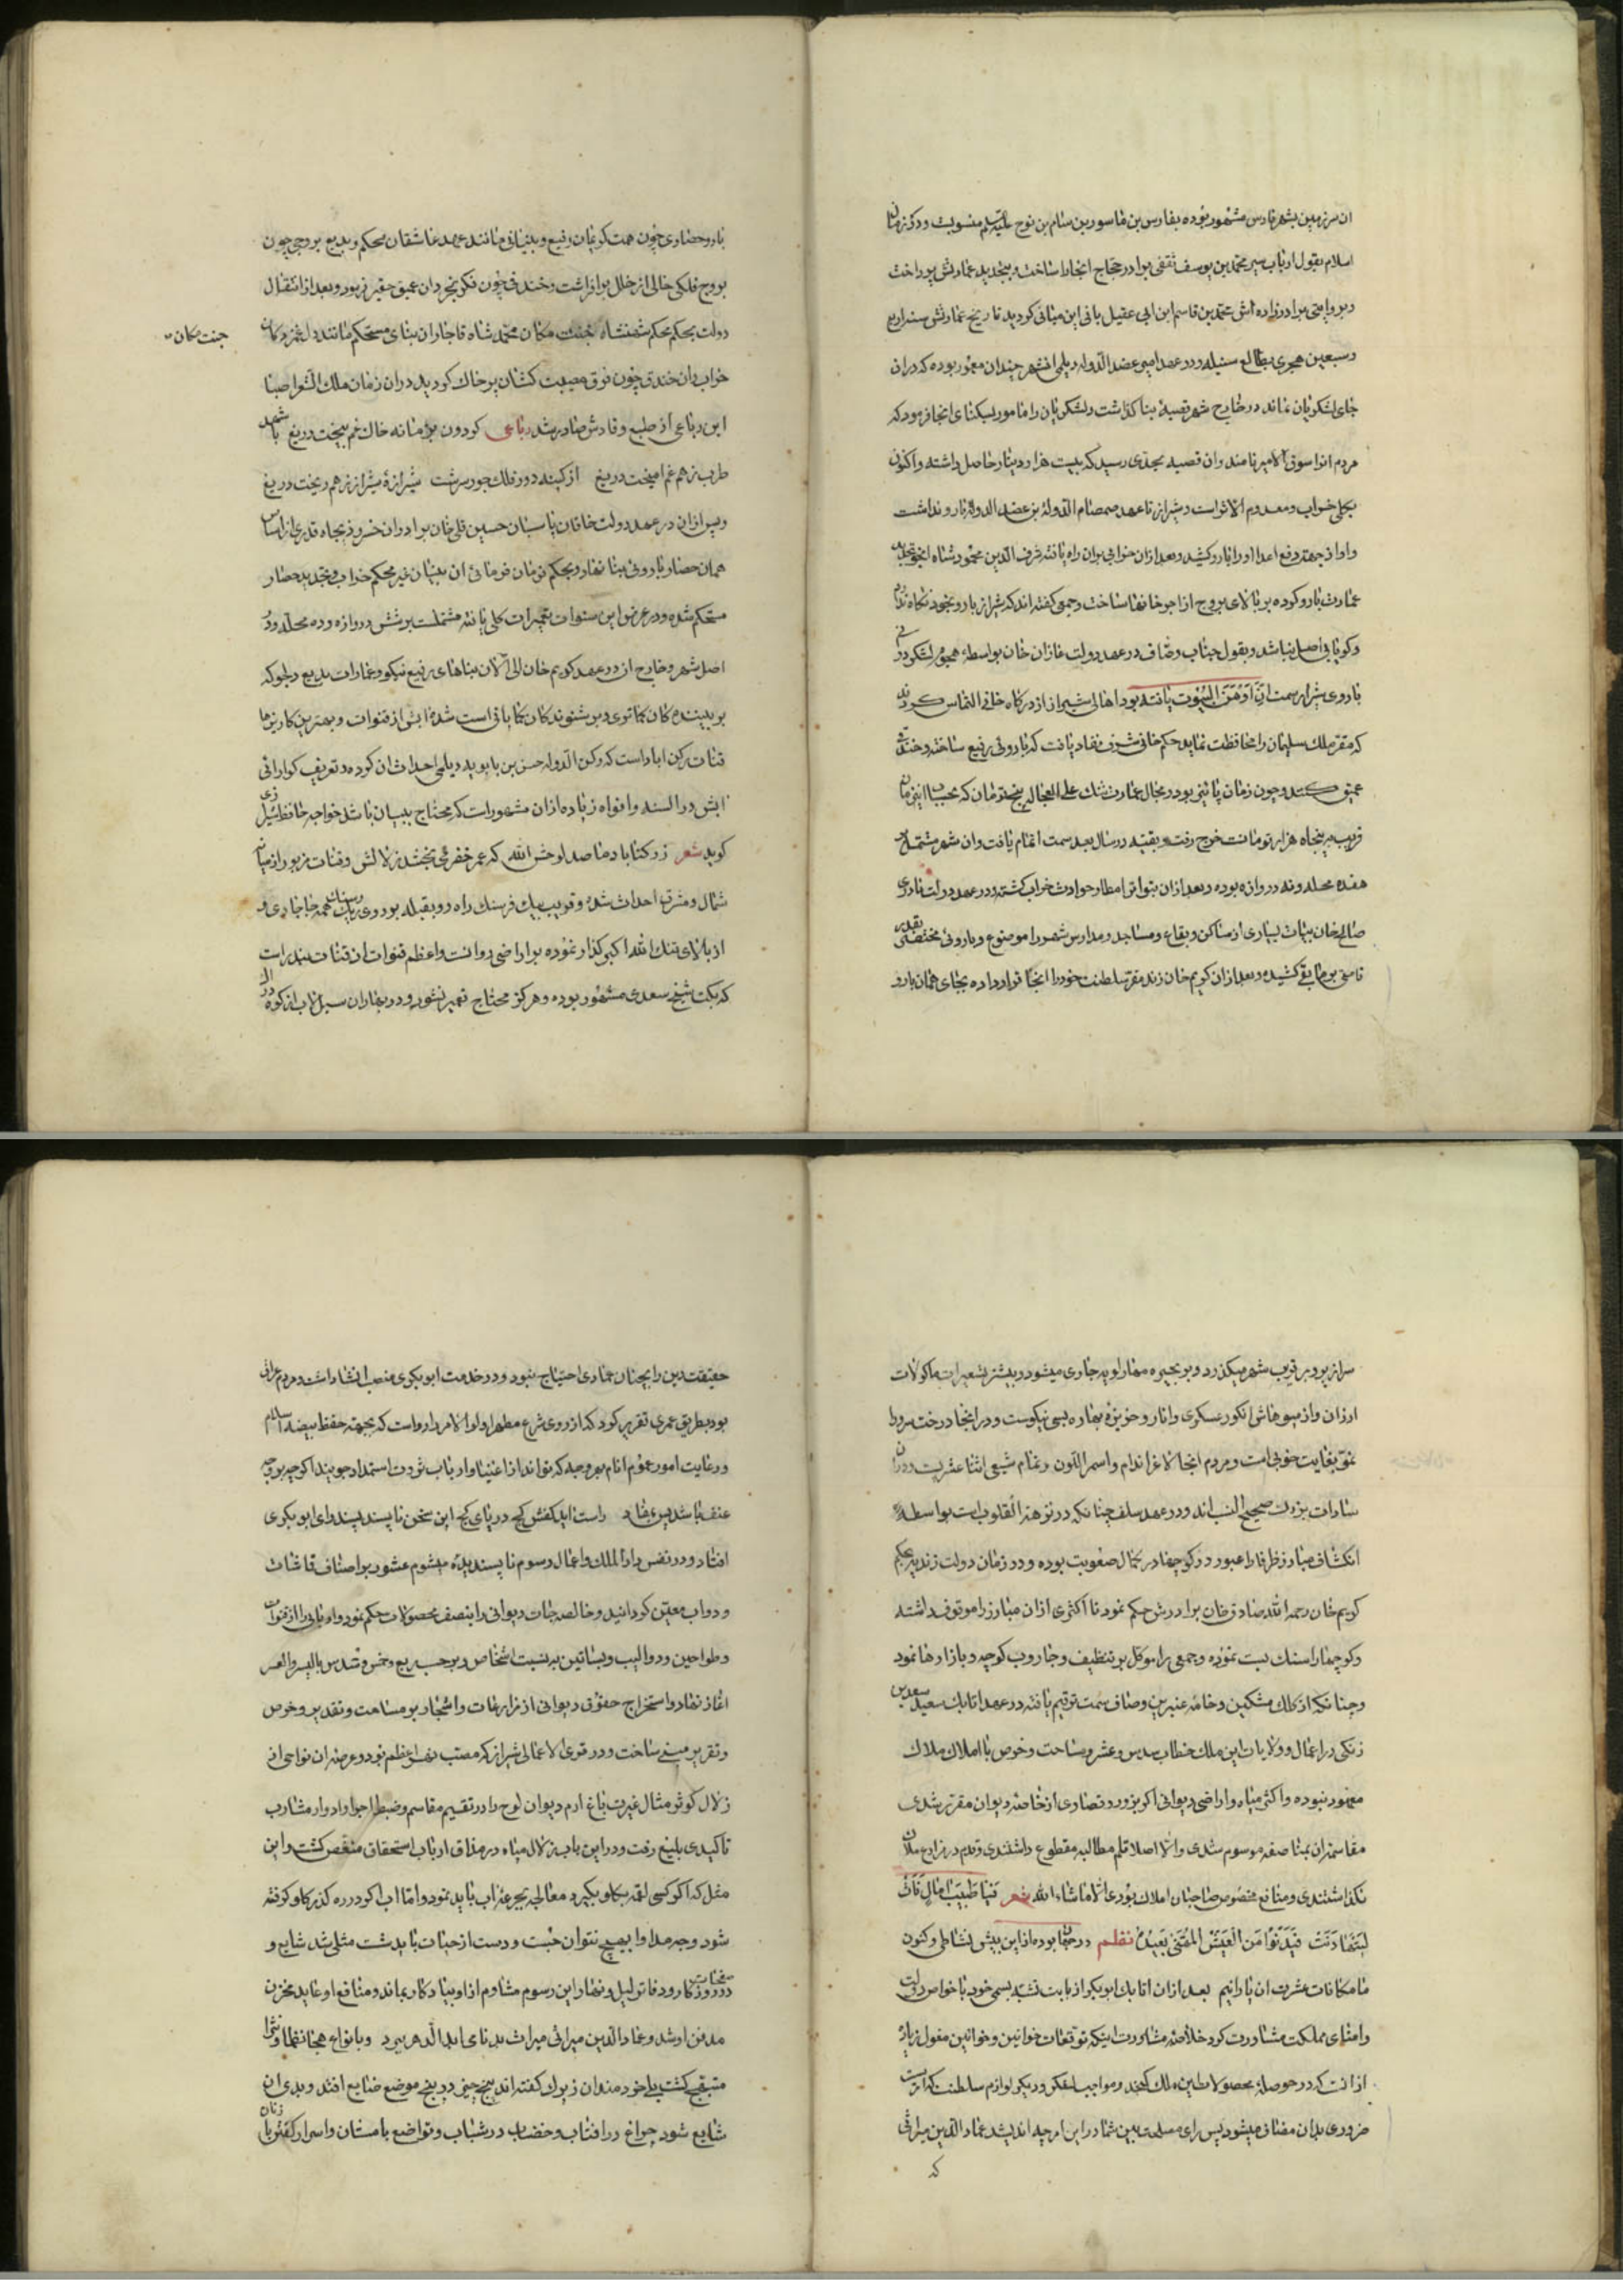 ان سرزمین بشهر فارس مشهور بوده بفارس بن ماسور بن سام بن نوح علیه السلام منسوبست ودر زمان
اسلام بقول ارباب سیر محمد بن یوسف ثقفی برادر حجاج انجا را ساخت و بتجدید عمارتش پرداخت
و بروایتی برادرزاده اش محمد بن قاسم ابن ابی عقیل بانی این مبانی کردید تاریخ عمارتش سنه اربع
و سبعین هجری بطالع سنبله ودر عهد امیر عضد الدوله دیلمی انشهر چندان معمور بوده که دران
جای لشکریان نماند در خارج شهر قصبهٔ بنا گذاشت و لشکریان را مامور بسکنای انجا فرمود که
مردم انرا سوق الامیر نامند وان قصبه بحدی رسید که بیست هزار دینار حاصل داشته واکنون
بکلی خراب ومعدوم الاثر است و شیراز تا عهد صمصام الدوله بن عضد الدوله بارو نداشت
واو از جهة دفع اعدا اورا بارو کشید و بعد از ان خرابی بران راه یافته شرف الدین محمود شاه اینجو تجدید
عمارت بارو کرده بر بالای بروج از اجر خانها ساخت و جمعی کفته اند که شیراز بارو بخود نکاه ندارد
و کویا بی اصل نباشد و بقول جناب وصاف در عهد دولت غازان خان بواسطه هجوم لشکر
باروی شیراز سمت انّ اوهن البیوت یافته بود اهالی شیراز از درکاه خانی التماس کردند
که مقر ملک سلیمان را محافظت نماید حکم خانی شرف نفاد یافت که باروئی رفیع ساخته وخندق
عمیق کنند وچون زمان پائیز بود و مجال عمارت تنک علی العجاله پنج تومان که بحساب این زمان
قریب به پنجاه هزار تومانست خرج رفت و بقیه در سال بعد سمت اتمام یافت وان شهر مشتمل بر
هفده محله ونه دروازه بوده و بعد از ان بتواتر امطار وحوادث خراب کشته ودر عهد دولت نادری
صالح خان بیات بسیاری از مساکن وبقاع ومساجد ومدارس شهر را موضوع وباروئی مختصر بقدر
نامی بر ما بقی کشیده و بعد از ان کریم خان زند مقر سلطنت خود را انجا قرار داده بجای همان بارو
بارو وحصاری چون همت کریمان رفیع وبنیانی مانند عهد عاشقان محکم وبدیع بروجی چون
بروج فلکی خالی از خلل برافراشت وخندقی چون فکر بخردان عمیق حفیر فرمود وبعد از انتقال
دولت بحکم محکم شهنشاه جنت مکان محمد شاه قاجار ان بنای مستحکم مانند دل
جنت مکان
خراب وان خندق چون فرق مصیبت کشان پر خاک کردید دران زمان ملک الشعرا صبا
این رباعی از طبع وقادش صادر شد رباعی کردون بزمانه خاک غم بیخت دریغ با شهد
طرب زهر غم امیخت دریغ از کینه دور فلک جور سرشت شیرازهٔ شیراز ز هم ریخت دریغ
وپس از ان در عهد دولت خاقان پاسبان حسین قلی خان برادر ان خسرو ذیجاه قدری از اساس
همان حصار باروئی بنا نهاد و بحکم تومان فرمائی ان بنیان غیر محکم خراب و بتجدید حصار
مستحکم شده ودر عرض این سنوات تعمیرات کلی یافته مشتملست بر شش دروازه و ده محله ودر
اصل شهر وخارج از در عهد کریم خان الی الان بناهای رفیع نیکو وعمارات بدیع دلجو که
بر بیننده کان کما تری و بر شنونده کان کما باقی است شده ابش از قنوات وبهترین کاریزها
قنات رکن اباد است که رکن الدوله حسن بن بابویه دیلمی احداث ان کرده وتعریف کوارائی
ابش در السنه وافواه زیاده از ان مشهور است که محتاج ببیان باشد خواجه حافظ شیرازی
کوید شعر ز رکناباد ما صد لوحش الله که عمر خضر می بخشد زلالش وقنات مزبور از میان
شمال ومشرق احداث شده وقریب یک فرسنک راه رو بقبله بر روی ریک وسنک همه جا جاری و
از بالای تنک الله اکبر کذار نموده بر اراضی روانست واعظم قنوات ان قنات بندر است
که بکت شیخ سعدی مشهور بوده وهرکز محتاج تعمیر نشود ودر بهاران سیلاب از کوه
سرازیر و بر قریب شهر میکذرد و بر بحیره مهارلویه جاری میشود و بیشتر تسعیرات ماکولات
ارزان واز میوهاش انکور عسکری وانار وخربزهٔ بهاره بسی نیکوست ودر انجا درخت سرو را
نمو بغایت خوبی است ومردم انجا لاغر اندام واسمر اللون وتمام شیعی اثنا عشریست ودران
سادات بزرک صحیح النسب اند ودر عهد سلف چنانکه در نزهة القلوب است بواسطهٔ
انکشاف مبارز ظرفا را عبور در کوچها در کمال صعوبت بوده و در زمان دولت زندیه بحکم
کریم خان رحمه الله صادق خان برادرش حکم نمود تا اکثری از ان مبارز را موقوف داشته
وکوچها را سنک بست نموده وجمعی را موکل بر تنظیف وجاروب کوچه وبازارها نمود
وچنانکه از کلک مشکین وخامه عنبرین وصاف سمت ترقیم یافته در عهد اتابک سعید سعد بن
زنکی در اعمال و ولایات این ملک خطاب سدس وعشر ومساحت وخرص با املاک ملاک
معهود نبوده واکثر میاه واراضی دیوانی اکر بزور وقصاری از خاصه دیوان مقرر شدی
مقاسمه ان بمناصفه موسوم شدی والا اصلا قلم مطالبه مقطوع داشتندی وقدم در مزارع ملاک
نکذاشتندی ومنافع مخصوص صاحبان املاک بودی الا ماشاء الله شعر فیا طیب ایام
لیتها دنت فیدنوا من العیش المقنی بعیده نظم در جهان بوده از این پیش نشاطی وکنون
ما مکافات عشرت ان یارانیم بعد از ان اتابک ابوبکر از بابت تشبه بسمی خود با خواص دولت
وامنای مملکت مشاورت کرد خلاصه مشاورت اینکه توقعات خوانین وخواتین مغول زیاده
از انست که در حوصله محصولات این ملک کنجد ومواجب لشکر ودیکر لوازم سلطنت که از
ضروری بدان مضاف میشود پس رای مصلحت بین شما در این امر چه اندیشد عماد الدین میراثی
که
حقیقت دین را بچنان عمادی احتیاج نبود ودر خدمت ابوبکری منصب انشا داشت ومردم عراق
بود بطریق عمری تقریر کرد که از روی شرع مطهر اولوا الامر را رواست که بجهة حفظ بیضه اسلام
ورعایت امور عموم انام بهر وجه که تواند از اغنیا وارباب ثروت استمداد جوید اکرچه بوجه
عنف باشد راست اید کفش کج در پای کج این سخن ناپسند پسند رای ابوبکری
افتاد ودر نفس دار الملک واعمال رسوم ناپسندیده میشوم عشور بر اصناف قماشات
ودواب معین کردانید وخالصه جات دیوانی را بنصف محصولات حکم نمود واربابی را از قنوات
وطواحین ودوالیب وبساتین بر نسبت اشخاص وبر حسب ربع وخمس وسدس بالیسر والعسر
اغاز نهاد واستخراج حقوق دیوانی از زراعات واشجار بر مساحت وتقدیر وخرص
وتقریر مبنی ساخت ودر قری الاعالی شیراز که مصب نهر اعظم بود وعرصه ان نواحی از
زلال کوثر مثال غیرت باغ ارم دیوان لوح را در تقسیم مقاسم وضبط اجرا وادوار مشارب
تاکیدی بلیغ رفت ودر این باب زلال میاه در مذاق ارباب استحقاق منغص کشت واین
مثل که اکر کسی لقمه بکلو بکیرد معالجه بجرعهٔ اب باید نمود واما اب اکر در ره کذر کلو کرفته
شود وجه مداوا بهیچ نتوان جست ودست از حیات باید شست مثلی شد شایع و
در صفحات روزکار ودفاتر لیل ونهار این رسوم مشاوم از او بیادکار بماند ومنافع او عاید مخزن
مدفن او شد وعماد الدین میراثی میراث بدنامی ابد الدهر ببرد وبانواع هجا نظما ونثرا
متبقح کشت بلی خردمندان زیرک کفته اند پنج چیز در پنج موضع ضایع افتد وبدی ان
شایع شود چراغ در افتاب وخضاب در شباب وتواضع با مستان واسرار کفتن با زنان